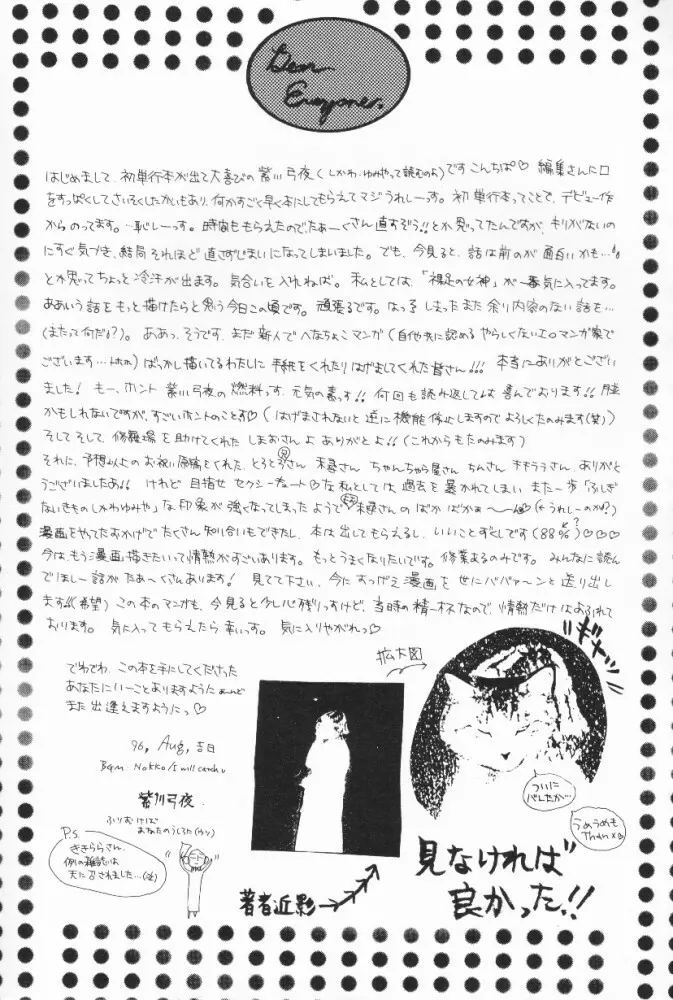 Dear
Everyone.
はじめまして、初単行本が出て大喜びの紫川弓夜(しかわ・ゆみやって読むのよ)です こんちは♡ 編集さんに口
をすっぱくしてさいそくしたかいもあり、何かすごく早く本にしてもらえてマジうれしーっす。初単行本ってことで、デビュー作
からのってます。恥しーっす。時間ももらえたのでたぁーくさん直すぞう!!とか思ってたんですが、キリがないの
にすぐ気づき、結局それほど直さずじまいになってしまいました。でも、今見ると、話は前のが面白いかも…
とか思ってちょっと冷汗が出ます。気合いを入れねば。私としては、「裸足の女神」が一番気に入ってます。
ああいう話をもっと描けたらと思う今日この頃です。頑張るです。はっ しまったまた余り内容のない話を…
(またって何だぁ?)。ああっ、そうです、まだ新人でへなちょこマンガ(自他共に認めるやらしくないエロマンガ家で
ございます…)ばっかし描いてるわたしに手紙をくれたりはげましてくれた皆さん!!! 本当にありがとござい
ました! もー、ホント 紫川弓夜の燃料っす、元気の素っす!! 何回も読み返しては喜んでおります!!
かもしれないですが、すごいホントのことす♡(はげまされないと逆に機能停止しますのでよろしくたのみます(笑))
そしてそして、修羅場を助けてくれた しまおさんよ ありがとよ!!(これからもたのみます)
それに、予想以上のお祝い原稿をくれた、とろとろさん ちゃんちゃら屋さん ちんさん キキララさん、ありがと
うございましたぁ!! けれど 目指せ セクシーキュート♡な私としては、過去を暴かれてしまい また一歩「ふしぎ
ないきものしかわゆみや」な印象が強くなってしまったようで さんのばかばかぁ〜ん(←うれしーのか?)
漫画をやってたおかげでたくさん知り合いもできたし、本は出してもらえるし、いいことずくしです(88%?)♡♡♡
今はもう漫画描きたいって情熱がすごいあります。もっとうまくなりたいです。修業あるのみです。みんなに読ん
でほしー話がたぁ〜くさんあります! 見てて下さい、今にすっげえ漫画を世にババァーンと送り出し
ます!!(希望) この本のマンガも、今見ると少し心残りっすけど、当時の精一杯なので、情熱だけはあふれて
おります。気に入ってもらえたら幸いっす。気に入りやがれっ♡
でわでわ、この本を手にしてくださった
あなたにいーことありますように
また出逢えますようにっ♡
96, Aug, 吉日
Bgm Nokko/I will catch u
紫川弓夜
ふりむけば
あなたのうしろに(ウソ)
P.S.
ききららさん、
例の雑誌は
天に召されました…(泣)
拡大図
著者近影
ギャー
ついに
バレたか…
うめうめも
Thanx
見なければ
良かった!!